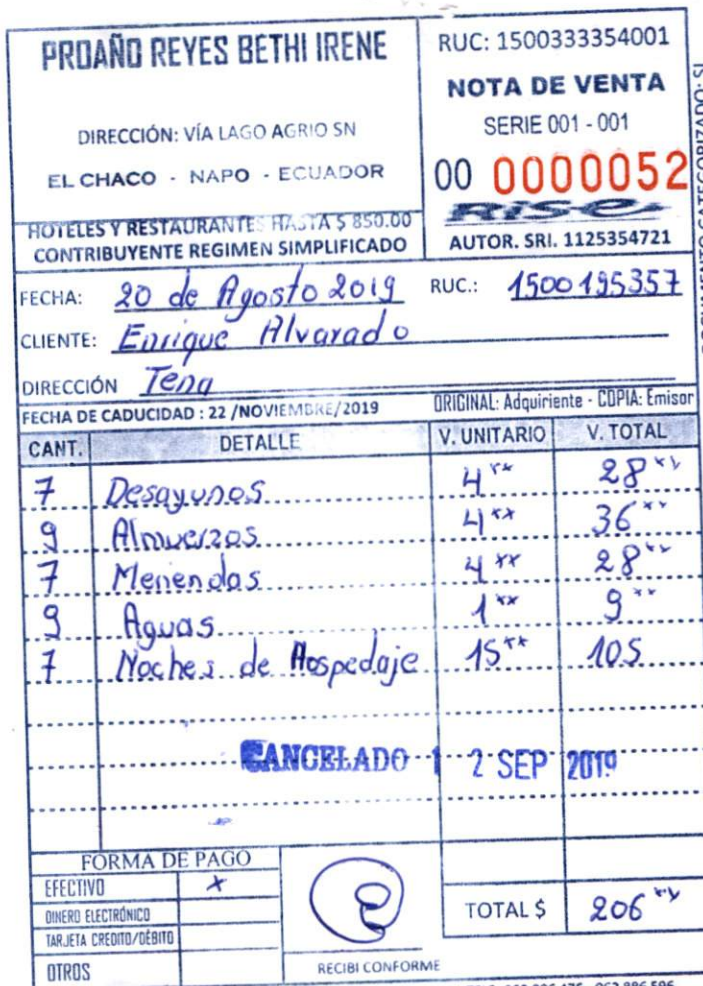 PROAÑO REYES BETHI IRENE
DIRECCIÓN: VÍA LAGO AGRIO SN
EL CHACO - NAPO - ECUADOR
HOTELES Y RESTAURANTES HASTA $ 850.00
CONTRIBUYENTE REGIMEN SIMPLIFICADO
RUC: 1500333354001
NOTA DE VENTA
SERIE 001 - 001
00 0000052
RISE
AUTOR. SRI. 1125354721
DOCUMENTO CATEGORIZADO: SI
FECHA: 20 de Agosto 2019 RUC.: 1500195357
CLIENTE: Enrique Alvarado
DIRECCIÓN Tena
FECHA DE CADUCIDAD : 22 /NOVIEMBRE/2019 ORIGINAL: Adquiriente - COPIA: Emisor
CANT. DETALLE V. UNITARIO V. TOTAL
7 Desayunos 4 xx 28 xx
9 Almuerzos 4 xx 36 xx
7 Meriendas 4 xx 28 xx
9 Aguas 1 xx 9 xx
7 Noches de Hospedaje 15 xx 105
CANCELADO 12 SEP 2019
FORMA DE PAGO
EFECTIVO x
DINERO ELECTRÓNICO
TARJETA CREDITO/DÉBITO
OTROS
RECIBI CONFORME
TOTAL $ 206 xx